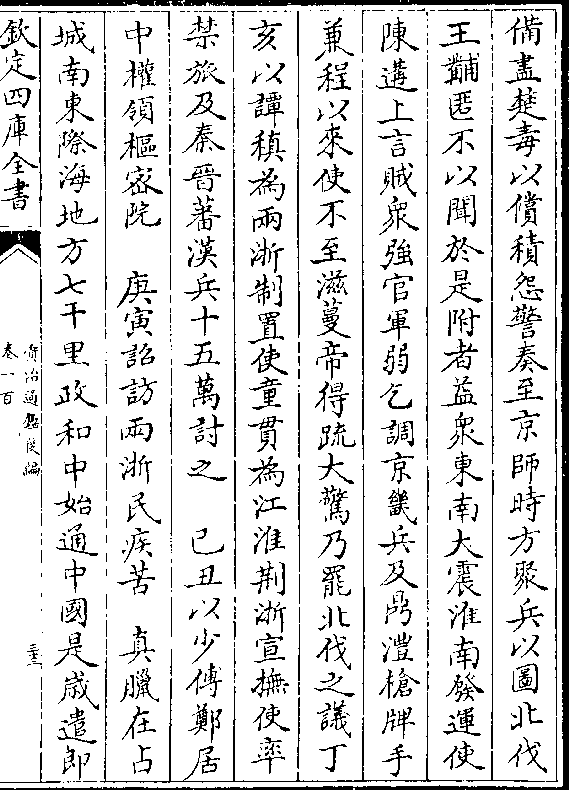 備盡楚毒以償積怨警奏至京師時方聚兵以圖北伐
王黼匿不以聞於是附者益衆東南大震淮南發運使
陳遘上言賊衆強官軍弱乞調京畿兵及鼎澧槍牌手
兼程以來使不至滋蔓帝得疏大驚乃罷北伐之議丁
亥以譚稹為兩浙制置使童貫為江淮荆浙宣撫使率
禁旅及秦晉蕃漢兵十五萬討之　己丑以少傅鄭居
中權領樞宻院　庚寅詔訪兩浙民疾苦　真臘在占
城南東際海地方七千里政和中始通中國是嵗遣郎
欽定四庫全書
資治通鑑後編
卷一百
三十三